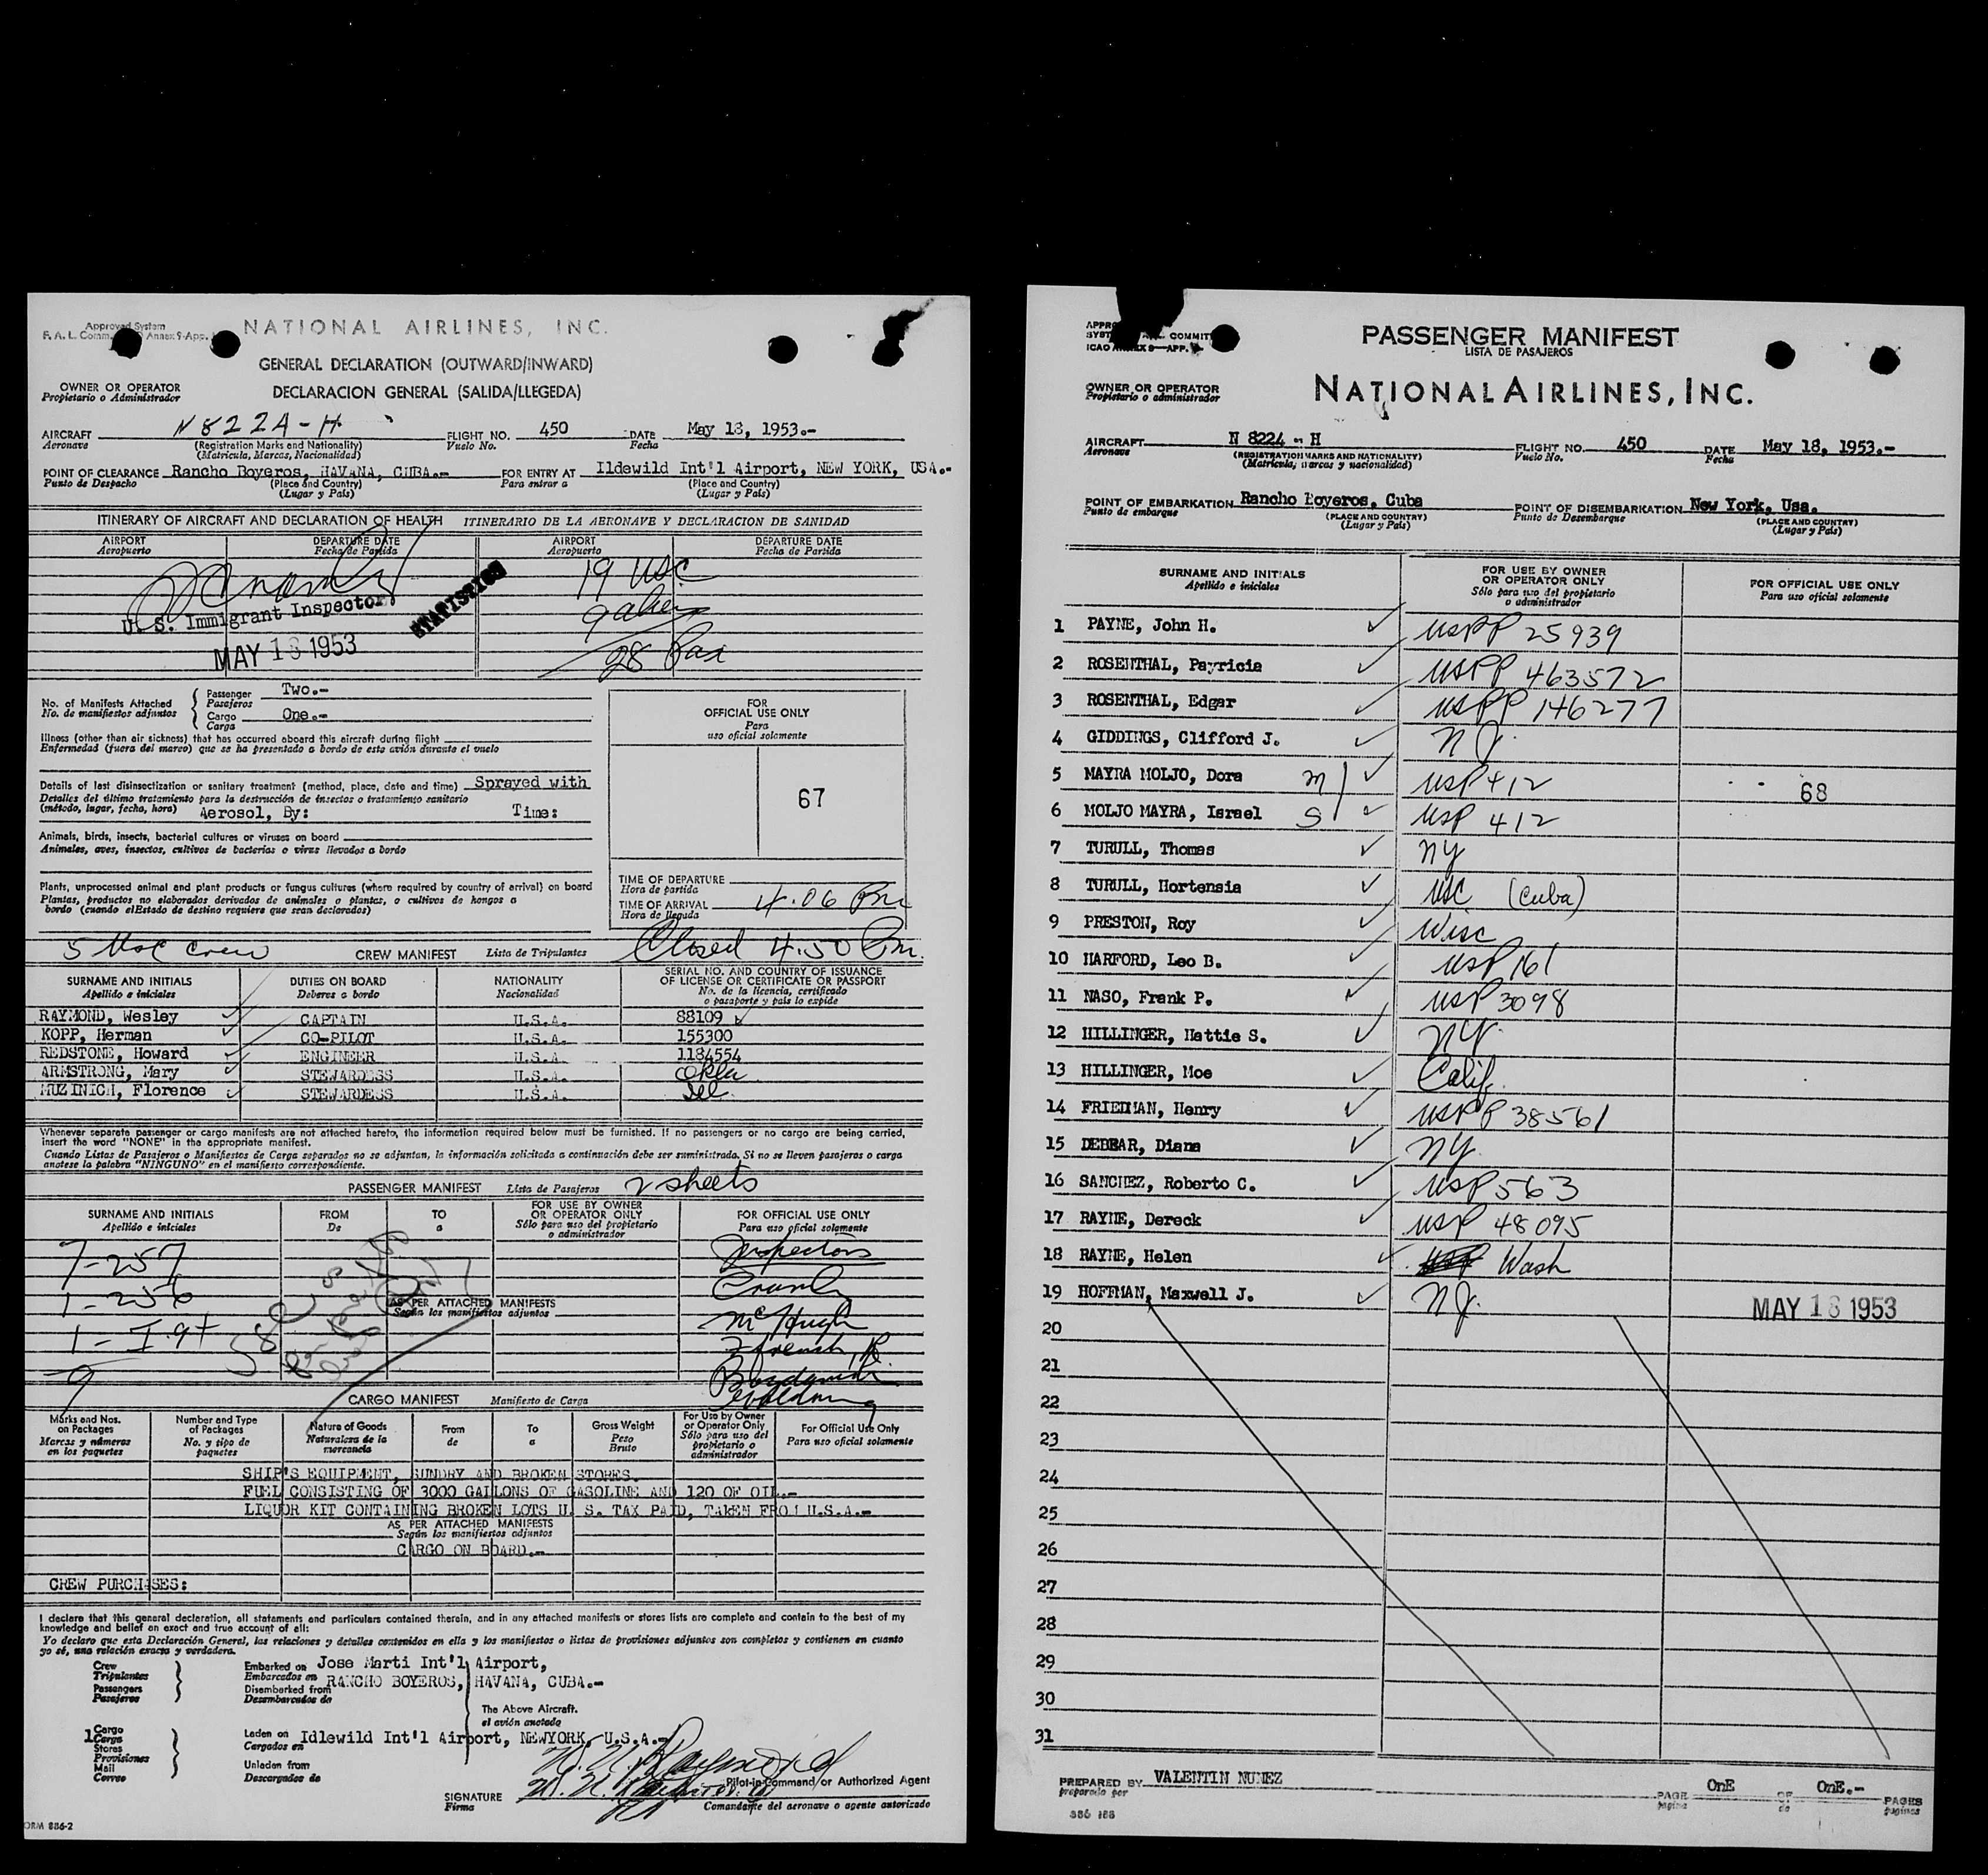 Approved System
F. A. L. Comm. Annex 9-App.
NATIONAL AIRLINES, INC.
GENERAL DECLARATION (OUTWARD/INWARD)
DECLARACION GENERAL (SALIDA/LLEGEDA)
OWNER OR OPERATOR
Propietario o Administrador
AIRCRAFT N822A-H FLIGHT NO. 450 DATE May 18, 1953.-
Aeronave (Registration Marks and Nationality) Vuelo No. Fecha
(Matricula, Marcas, Nacionalidad)
POINT OF CLEARANCE Rancho Boyeros, HAVANA, CUBA.- FOR ENTRY AT Ildewild Int'l Airport, NEW YORK, USA.-
Punto de Despacho (Place and Country) Para entrar a (Place and Country)
(Lugar y País) (Lugar y País)
ITINERARY OF AIRCRAFT AND DECLARATION OF HEALTH ITINERARIO DE LA AERONAVE Y DECLARACION DE SANIDAD
AIRPORT DEPARTURE DATE AIRPORT DEPARTURE DATE
Aeropuerto Fecha de Partida Aeropuerto Fecha de Partida
19 USC
U. S. Immigrant Inspector
STATISTICS
9 aliens
MAY 18 1953
28 Pax
No. of Manifests Attached Passenger Two.-
No. de manifiestos adjuntos Pasajeros
Cargo One.-
Carga
Illness (other than air sickness) that has occurred aboard this aircraft during flight
Enfermedad (fuera del mareo) que se ha presentado a bordo de este avión durante el vuelo
FOR
OFFICIAL USE ONLY
Para
uso oficial solamente
67
Details of last disinsectization or sanitary treatment (method, place, date and time) Sprayed with
Detalles del último tratamiento para la destrucción de insectos o tratamiento sanitario
(método, lugar, fecha, hora) Aerosol, By: Time:
Animals, birds, insects, bacterial cultures or viruses on board
Animales, aves, insectos, cultivos de bacterias o virus llevados a bordo
Plants, unprocessed animal and plant products or fungus cultures (where required by country of arrival) on board
Plantas, productos no elaborados derivados de animales o plantas, o cultivos de hongos a
bordo (cuando elEstado de destino requiere que sean declarados)
TIME OF DEPARTURE
Hora de partida
TIME OF ARRIVAL 4.06 Pm
Hora de llegada
5 USC Crew CREW MANIFEST Lista de Tripulantes Closed 4.50 Pm.
SURNAME AND INITIALS DUTIES ON BOARD NATIONALITY SERIAL NO. AND COUNTRY OF ISSUANCE
OF LICENSE OR CERTIFICATE OR PASSPORT
Apellido e iniciales Deberes a bordo Nacionalidad No. de la licencia, certificado
o pasaporte y país lo expide
RAYMOND, Wesley CAPTAIN U.S.A. 88109
KOPP, Herman CO-PILOT U.S.A. 155300
REDSTONE, Howard ENGINEER U.S.A. 1184554
ARMSTRONG, Mary STEWARDESS U.S.A. Okla
MUZINICH, Florence STEWARDESS U.S.A. Ill
Whenever separate passenger or cargo manifests are not attached hereto, the information required below must be furnished. If no passengers or no cargo are being carried,
insert the word "NONE" in the appropriate manifest.
Cuando Listas de Pasajeros o Manifiestos de Carga separados no se adjuntan, la información solicitada a continuación debe ser suministrada. Si no se lleven pasajeros o carga
anotese la palabra "NINGUNO" en el manifiesto correspondiente.
PASSENGER MANIFEST Lista de Pasajeros 2 sheets
SURNAME AND INITIALS FROM TO FOR USE BY OWNER
OR OPERATOR ONLY FOR OFFICIAL USE ONLY
Apellido e iniciales De a Sólo para uso del propietario
o administrador Para uso oficial solamente
7-257 Inspectors
1-256 Crumly
AS PER ATTACHED MANIFESTS
Según los manifiestos adjuntos
McHugh
1-I.94
9
CARGO MANIFEST Manifiesto de Carga
Marks and Nos.
on Packages
Marcas y números
en los paquetes
Number and Type
of Packages
No. y tipo de
paquetes
Nature of Goods
Naturaleza de la
mercancía
From
de
To
a
Gross Weight
Peso
Bruto
For Use by Owner
or Operator Only
Sólo para uso del
propietario o
administrador
For Official Use Only
Para uso oficial solamente
SHIP'S EQUIPMENT, SUNDRY AND BROKEN STORES.
FUEL CONSISTING OF 3000 GALLONS OF GASOLINE AND 120 OF OIL.-
LIQUOR KIT CONTAINING BROKEN LOTS U. S. TAX PAID, TAKEN FROM U.S.A.-
AS PER ATTACHED MANIFESTS
Según los manifiestos adjuntos
CARGO ON BOARD.-
CREW PURCHASES:
I declare that this general declaration, all statements and particulars contained therein, and in any attached manifests or stores lists are complete and contain to the best of my
knowledge and belief an exact and true account of all:
Yo declaro que esta Declaración General, las relaciones y detalles contenidos en ella y los manifiestos o listas de provisiones adjuntos son completos y contienen en cuanto
yo sé, una relación exacta y verdadera.
Crew
Tripulantes
Passengers
Pasajeros
Embarked on Jose Marti Int'l Airport,
Embarcados en RANCHO BOYEROS, HAVANA, CUBA.-
Disembarked from
Desembarcados de
The Above Aircraft.
el avión anotado
1 Cargo
Carga
Stores
Provisiones
Mail
Correo
Laden on Idlewild Int'l Airport, NEWYORK, U.S.A.-
Cargados en
Unladen from
Descargados de
Pilot-in-Command or Authorized Agent
SIGNATURE
Firma Comandante del aeronave o agente autorizado
ORM 886-2
PASSENGER MANIFEST
LISTA DE PASAJEROS
NATIONAL AIRLINES, INC.
OWNER OR OPERATOR
Propietario o administrador
AIRCRAFT N 8224 - H FLIGHT NO. 450 DATE May 18, 1953.-
Aeronave (REGISTRATION MARKS AND NATIONALITY) Vuelo No. Fecha
(Matricula, marcas y nacionalidad)
POINT OF EMBARKATION Rancho Boyeros, Cuba POINT OF DISEMBARKATION New York, Usa.
Punto de embarque (PLACE AND COUNTRY) Punto de Desembarque (PLACE AND COUNTRY)
(Lugar y País) (Lugar y País)
SURNAME AND INITIALS FOR USE BY OWNER
OR OPERATOR ONLY FOR OFFICIAL USE ONLY
Apellido e iniciales Sólo para uso del propietario
o administrador Para uso oficial solamente
1 PAYNE, John H. USPP 25939
2 ROSENTHAL, Payricia USPP 463572
3 ROSENTHAL, Edgar USPP 146277
4 GIDDINGS, Clifford J. NJ.
5 MAYRA MOLJO, Dora M USP 412
68
6 MOLJO MAYRA, Israel S USP 412
7 TURULL, Thomas NY
8 TURULL, Hortensia USC (Cuba)
9 PRESTON, Roy Wisc
10 HARFORD, Leo B. USP 161
11 NASO, Frank P. USP 3098
12 HILLINGER, Hattie S. NY
13 HILLINGER, Moe Calif.
14 FRIEDMAN, Henry USPP 38561
15 DEBBAR, Diana NY
16 SANCHEZ, Roberto C. USP 563
17 RAYNE, Dereck USP 48095
18 RAYNE, Helen Wash
19 HOFFMAN, Maxwell J. NJ. MAY 18 1953
20
21
22
23
24
25
26
27
28
29
30
31
PREPARED BY VALENTIN NUNEZ PAGE OnE OF OnE.- PAGES
preparado por página de páginas
886 188